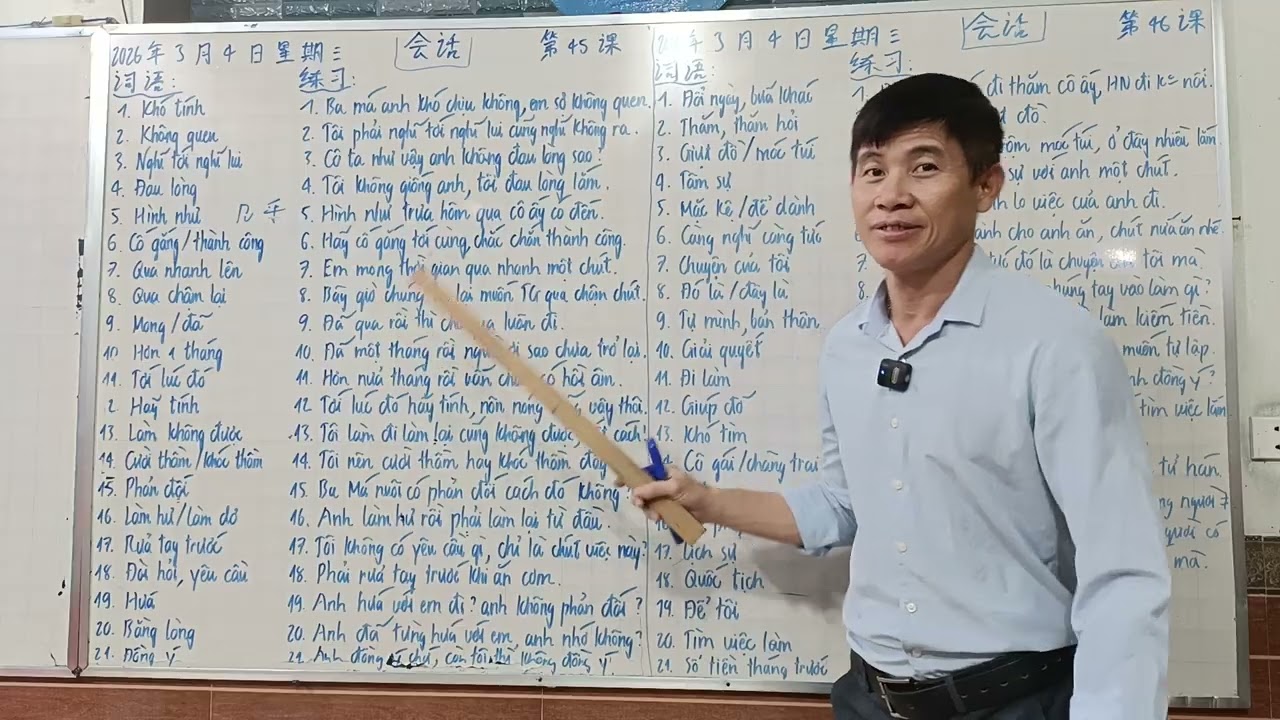 2026年3月4日星期三 会话 第45课
词语:
1. Khó tính
2. Không quen
3. Nghĩ tới nghĩ lui
4. Đau lòng
5. Hình như 几乎
6. Cố gắng/thành công
7. Qua nhanh lên
8. Qua chậm lại
9. Mong/đã
10 Hơn 1 tháng
11. Tới lúc đó
2 Hãy tính
13. Làm không được
14. Cười thầm/khóc thầm
15. Phản đối
16. Làm hư/làm dở
17. Rửa tay trước
18. Đòi hỏi, yêu cầu
19. Hứa
20. Bằng lòng
21. Đồng ý
练习:
1. Ba má anh khó chịu không, em sợ không quen.
2. Tôi phải nghĩ tới nghĩ lui cũng nghĩ không ra.
3. Cô ta như vậy anh không đau lòng sao?
4. Tôi không giống anh, tôi đau lòng lắm.
5. Hình như trưa hôm qua cô ấy có đến.
6. Hãy cố gắng tới cùng, chắc chắn thành công.
7. Em mong thời gian qua nhanh một chút.
8. Bây giờ chúng lại muốn TG qua chậm chút.
9. Đã qua rồi thì luôn đi.
10. Đã một tháng rồi sao chưa trở lại.
11. Hơn nửa tháng rồi vẫn có hồi âm.
12. Tới lúc đó hãy tính, nôn nóng vậy thôi.
13. Tôi làm đi làm lại cũng không được, cách!
14. Tôi nên cười thầm hay khóc thầm đây
15. Ba Má nuôi có phản đối cách đó không?
16. Anh làm hư rồi phải làm lại từ đầu.
17. Tôi không có yêu cầu gì, chỉ là chút việc này.
18. Phải rửa tay trước khi ăn cơm.
19. Anh hứa với em đi? anh không phản đối?
20. Anh đã từng hứa với em, anh nhớ không?
21. Anh đồng ý chứ, còn tôi thì không đồng ý
年3月4日星期三 会话 第46课
词语:
1. Đổi ngày, bữa khác
2. Thăm, thăm hỏi
3. Giựt đồ/móc túi
4. Tâm sự
5. Mặc kệ/để dành
6. Càng nghĩ càng tức
7. Chuyện của tôi
8. Đó là/đây là
9. Tự mình, bản thân
10. Giải quyết
11. Đi làm
12. Giúp đỡ
13. Khó tìm
Cô gái/chàng trai
17. Lịch sự
18. Quốc tịch
19. Để tôi
20. Tìm việc làm
21. Số tiền tháng trước
练习:
đi thăm cô ấy, HN đi k= nổi.
đồ.
móc túi, ở đây nhiều lắm
sự với anh một chút.
lo việc của anh đi.
anh cho anh ăn, chút nữa ăn nhé.
đó là chuyện của tôi mà
tay vào làm gì?
làm kiếm tiền.
muốn tự lập.
đồng ý?
tìm việc làm
tử hán.
người 7
có
mà.